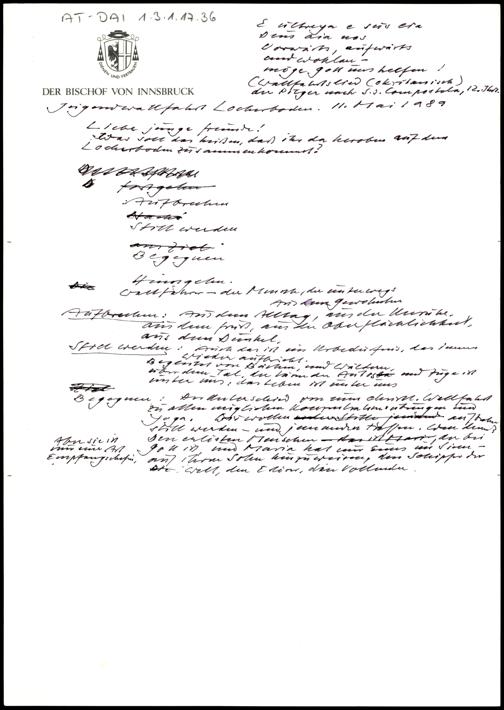 AT-DAI 1.3.1.17.36
E ultreya e sus eia
Deus aia nos
Vorwärts, aufwärts
und wohlan –
möge Gott uns helfen!
(Wallfahrtslied (okzitanisch)
der Pilger nach S.J. Compostela, 12. Jht.
DER BISCHOF VON INNSBRUCK
Jugendwallfahrt Locherboden. 11. Mai 1989
Liebe junge Freunde!
Was soll das heißen, daß ihr da heroben auf dem
Locherboden zusammenkommt?
fortgehen
Aufbrechen
Still werden
Begegnen
Hinsgehn.
Wallfahrer – der Mensch, der unterwegs
Aus dem Gewohnten
Aufbrechen: Aus dem Alltag, aus der Unruhe,
aus dem Frust, aus der Oberflächlichkeit,
aus dem Dunkel.
Still werden: Auch das ist ein Urbedürfnis, das immer
wieder aufbricht.
Begleitet von Bächen und Wäldern,
über dem Tal, der Lärm der Autos und Züge ist
unter uns, das Leben ist unter uns
Begegnen: Der Unterschied von einer christl. Wallfahrt
zu allen möglichen Konzentrationsübungen und
Yoga. Wir wollen
still werden – und jemanden treffen. Wen denn?
Den erlösten Menschen – der bei
Gott ist und Maria hat nur Eines im Sinn –
auf ihren Sohn hinzuweisen, den Schöpfer der
Welt, den Erlöser, den Vollender.
Aber sie ist
nur eine Art
Empfangschefin,